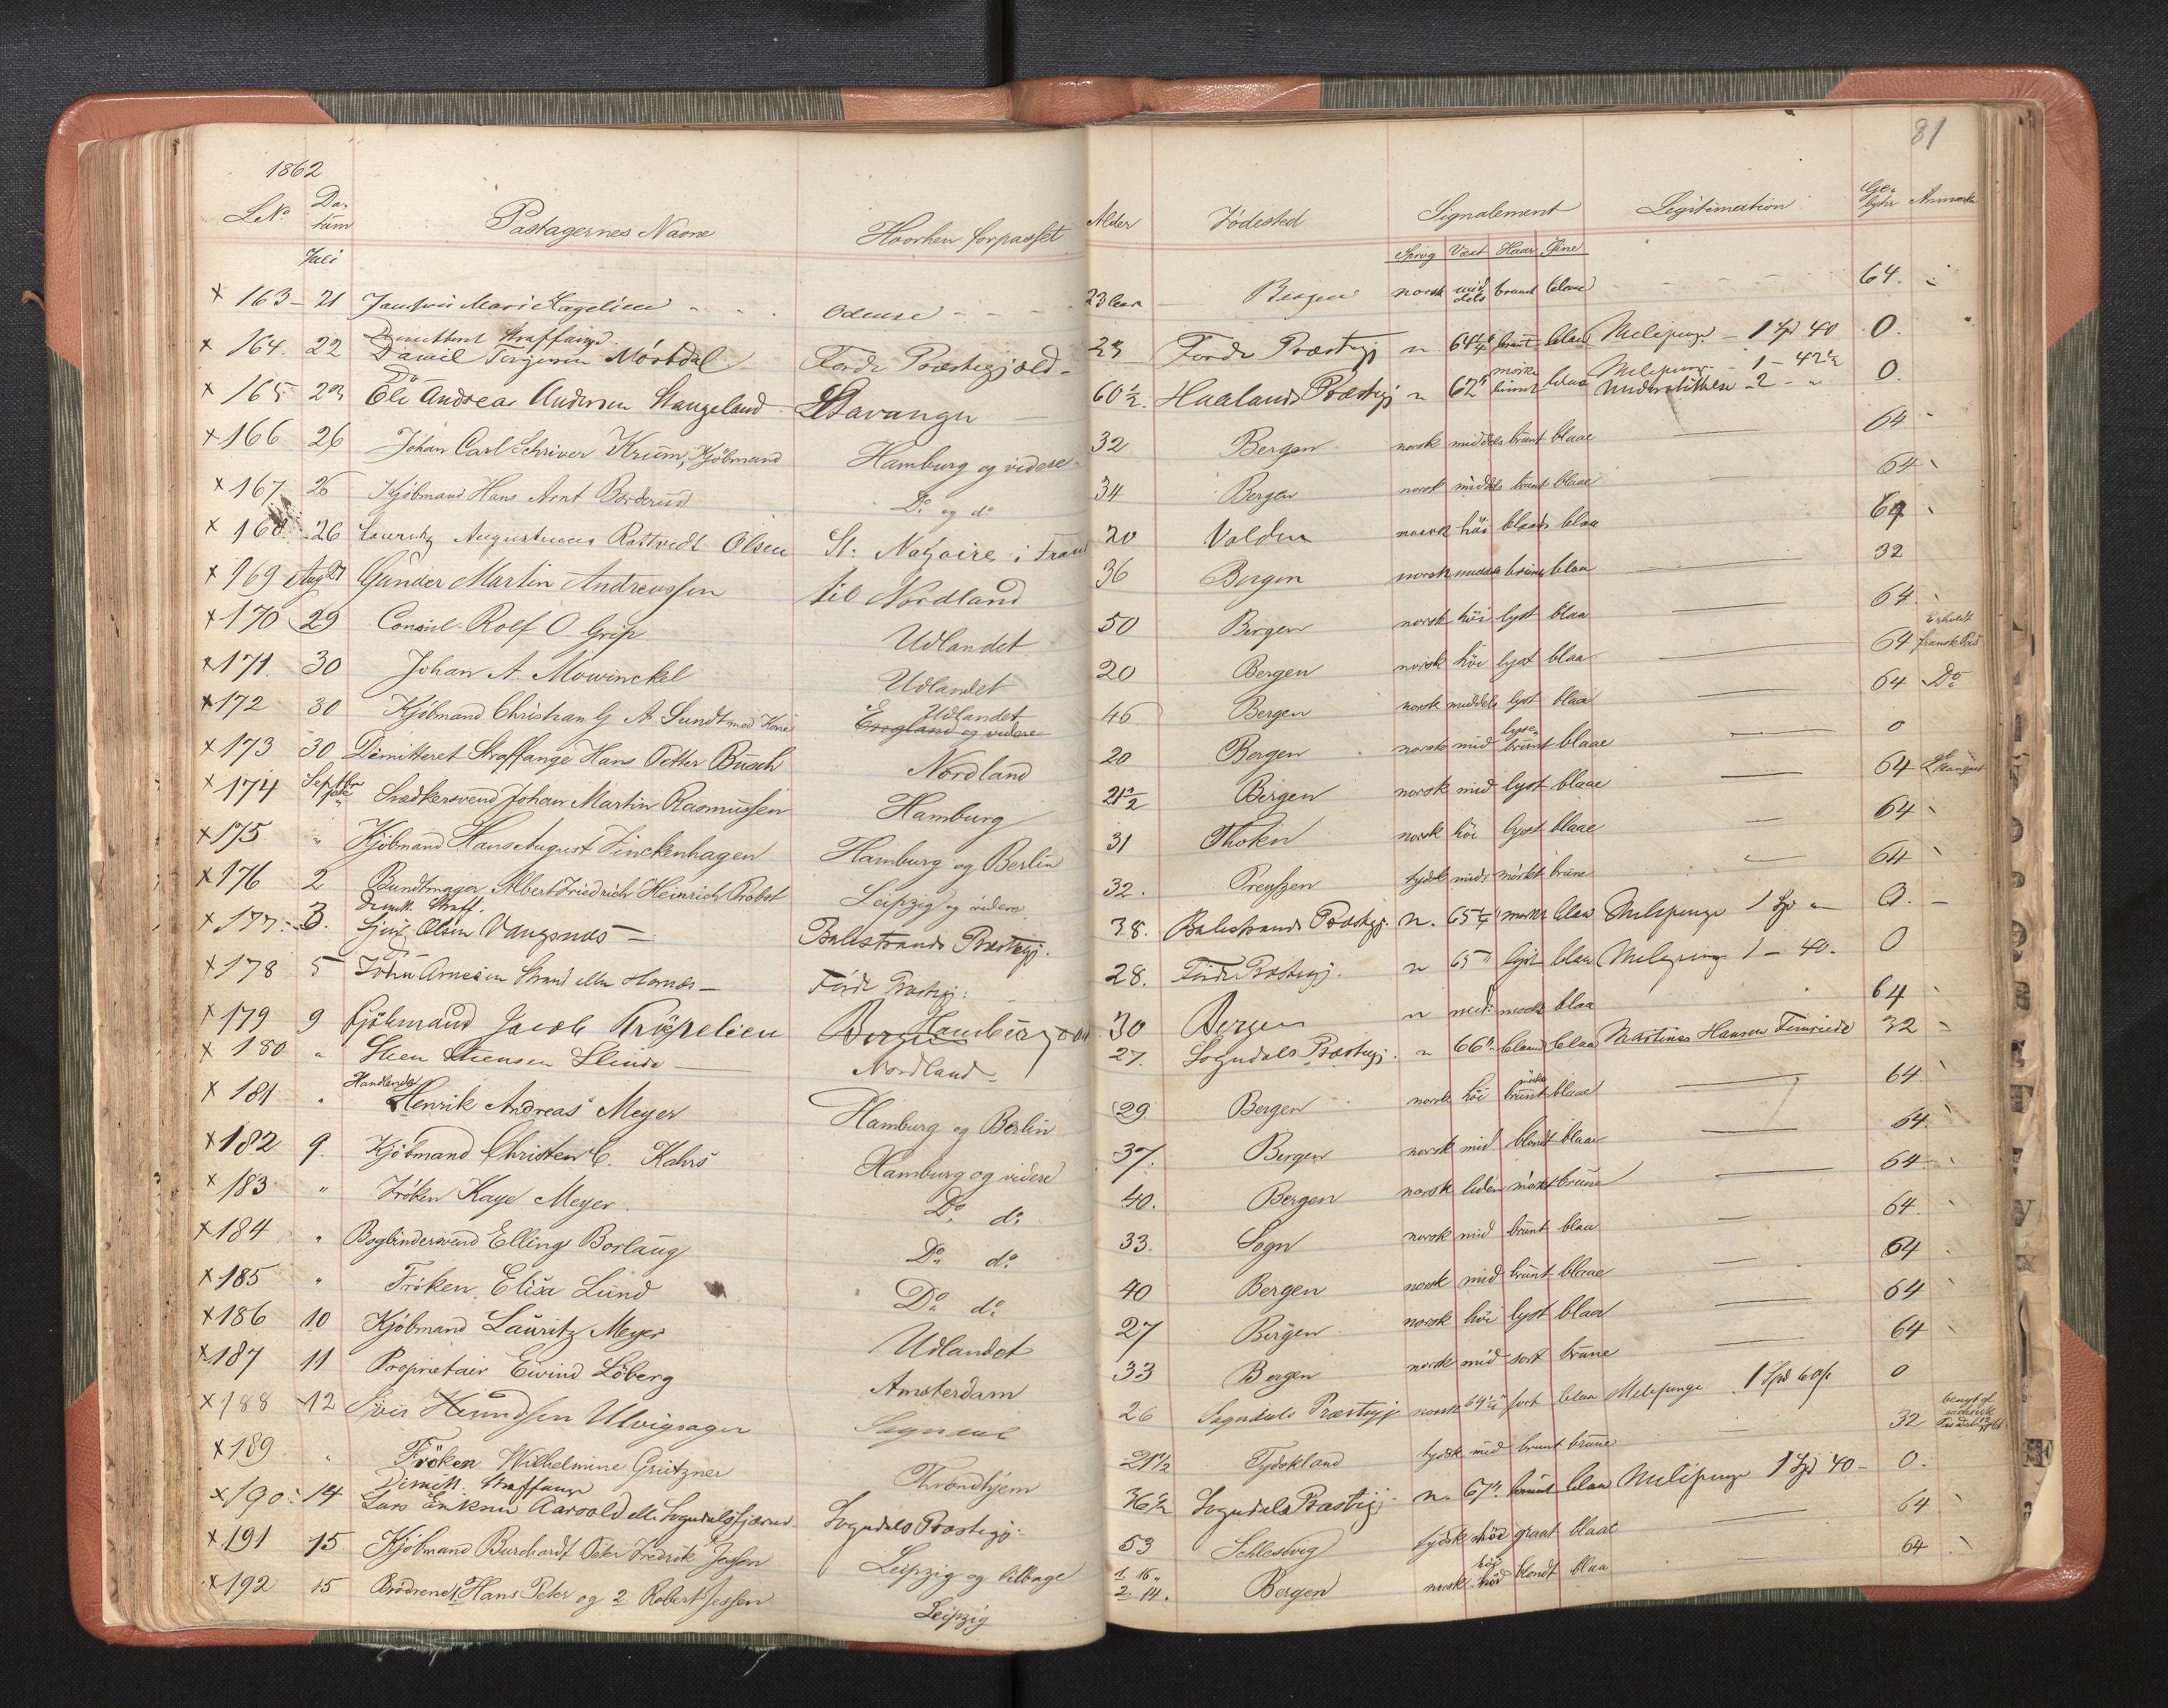 81
1862
LNo Da-tum Pastagernes Navne Hvorhen forpasset Alder Födested Signalement Legitimation Gebyhr Anmærk
Juli Sprog Væxt Haar Öine
× 163 - 21 Jomfru Marie Hagelien Odense 23 Bergen norsk middels brunt blaae 64.
Demitteret Straffange
× 164. 22 Daniel Torgersen Mörkdal Förde Præstegjæld - 23 Förde Præstegj n 64¼" brunt blaa Milepenge - 1 Spd 40 0.
Do mörke Milepenge - 1 - 42½
× 165 23 Ole Andreas Andersen Stangeland Stavanger 60½ Haalands Præstegj n 62" brune blaa Understöttelse - 2 - " 0.
× 166 26 Johan Carl Schriver Krum, Kjöbmand Hamburg og videre 32 Bergen norsk middels brunt blaae 64
× 167 26 Kjöbmand Hans Arnt Do og do 34 Bergen norsk middels brunt blaae 64
× 168 26 Lauritz Augustinus Olsen St. Nazaire i Frank 20 norsk höi blaa 64
× 169 Aug 27 Gunder Martin Andreassen til Nordland 36 Bergen norsk middels brune blaa 32
× 170 29 Consul Rolf O Grip Udlandet 50 Bergen norsk höi lyst blaa 64.
Erholdt
× 171. 30 Johan A. Mowinckel Udlandet 20 Bergen norsk höi lyst blaa 64 fransk Pas
× 172 30 Kjöbmand Christian G A Sundt med Kone Udlandet England og videre 46 Bergen norsk middels lyst blaa 64 Do
× 173 30 Dimitteret Straffange Hans Petter Busch Nordland 20 Bergen norsk mid lyse brunt blaae 0
× 174 Septbr Snedkersvend Johan Martin Rasmussen Hamburg 21½ Bergen norsk mid lyst blaae 64
× 175 " Kjöbmand Hans August Finckenhagen Hamburg og Berlin 31 norsk höi lyst blaae 64
× 176 2 Bundtmager Albert Friedrich Heinrich Probst Leipzig og videre 32. Preuszen tydsk mid: mörkt brune 64
Dimitt. Straff.
× 177. 3. Sjur Olsen Vangsnæs - Balestrands Præstegj. 38. Balestrands Præstegj. n. 65¼" mörkt blaa Milepenge 1 Spd " - 0. -
Do
× 178 5 John Arnesen Strand eller Hornæs - Förde Præstegj. 28. Förde Præstegj. n 65" lyst blaa Milepenge 1 - 40. 0
× 179 9 Kjöbmand Jacob Bergen Hamburg 30 Bergen n med: mörkt blaa 64
× 180 " Steen Steensen Slinde - Nordland - 27. Sogndals Præstegj. n 66" blond blaa Martines Hansen 32
Handlende mörke
× 181 " Henrik Andreas Meyer Hamburg og Berlin 29 Bergen norsk höi brunt blaae 64.
× 182 9. Kjöbmand Christen C. Kahrs Hamburg og videre 37. Bergen norsk mid blondt blaae 64.
× 183 " Fröken Kaye Meyer. Do do 40. Bergen norsk liden mörkt brune 64
× 184 " Bogbindersvend Elling Borlaug Do do 33. Sogn norsk mid brunt blaa 64.
× 185 " Fröken Elisa Lund Do do 40 Bergen norsk mid brunt blaae 64
× 186 10 Kjöbmand Lauritz Meyer Udlandet 27 Bergen norsk höi lyst blaae 64
× 187 11 Proprietair Eivind Löberg Amsterdam 33 Bergen norsk mid sort brune 64
× 188 12 Iver Ulvigsager Sogndal 26 Sogndals Præstegj norsk 64½" sort blaa Milepenge 1 Spd 60 0
× 189 " Fröken Wilhelmine Grützner Throndhjem 21½ Tydskland tydsk mid brunt brune 32
Dimitt. Straffange
× 190. 14 Lars Eriksen Aaroold eller Sogndalsfjæren Sogndals Præstegj. 36½ Sogndals Præstegj. n. 67" brunt blaa Milepenge 1 Spd 40 - 0.
× 191 15 Kjöbmand Burchardt Peter Fredrik Jessen Leipzig og tilbage 53 Schlesvig tydsk höi graat blaae 64
× 192 15 Brödrene 1. Hans Peter og 2 Robert Jessen Leipzig 1. 16. 2. 14. Bergen norsk höi blondt blaa 64